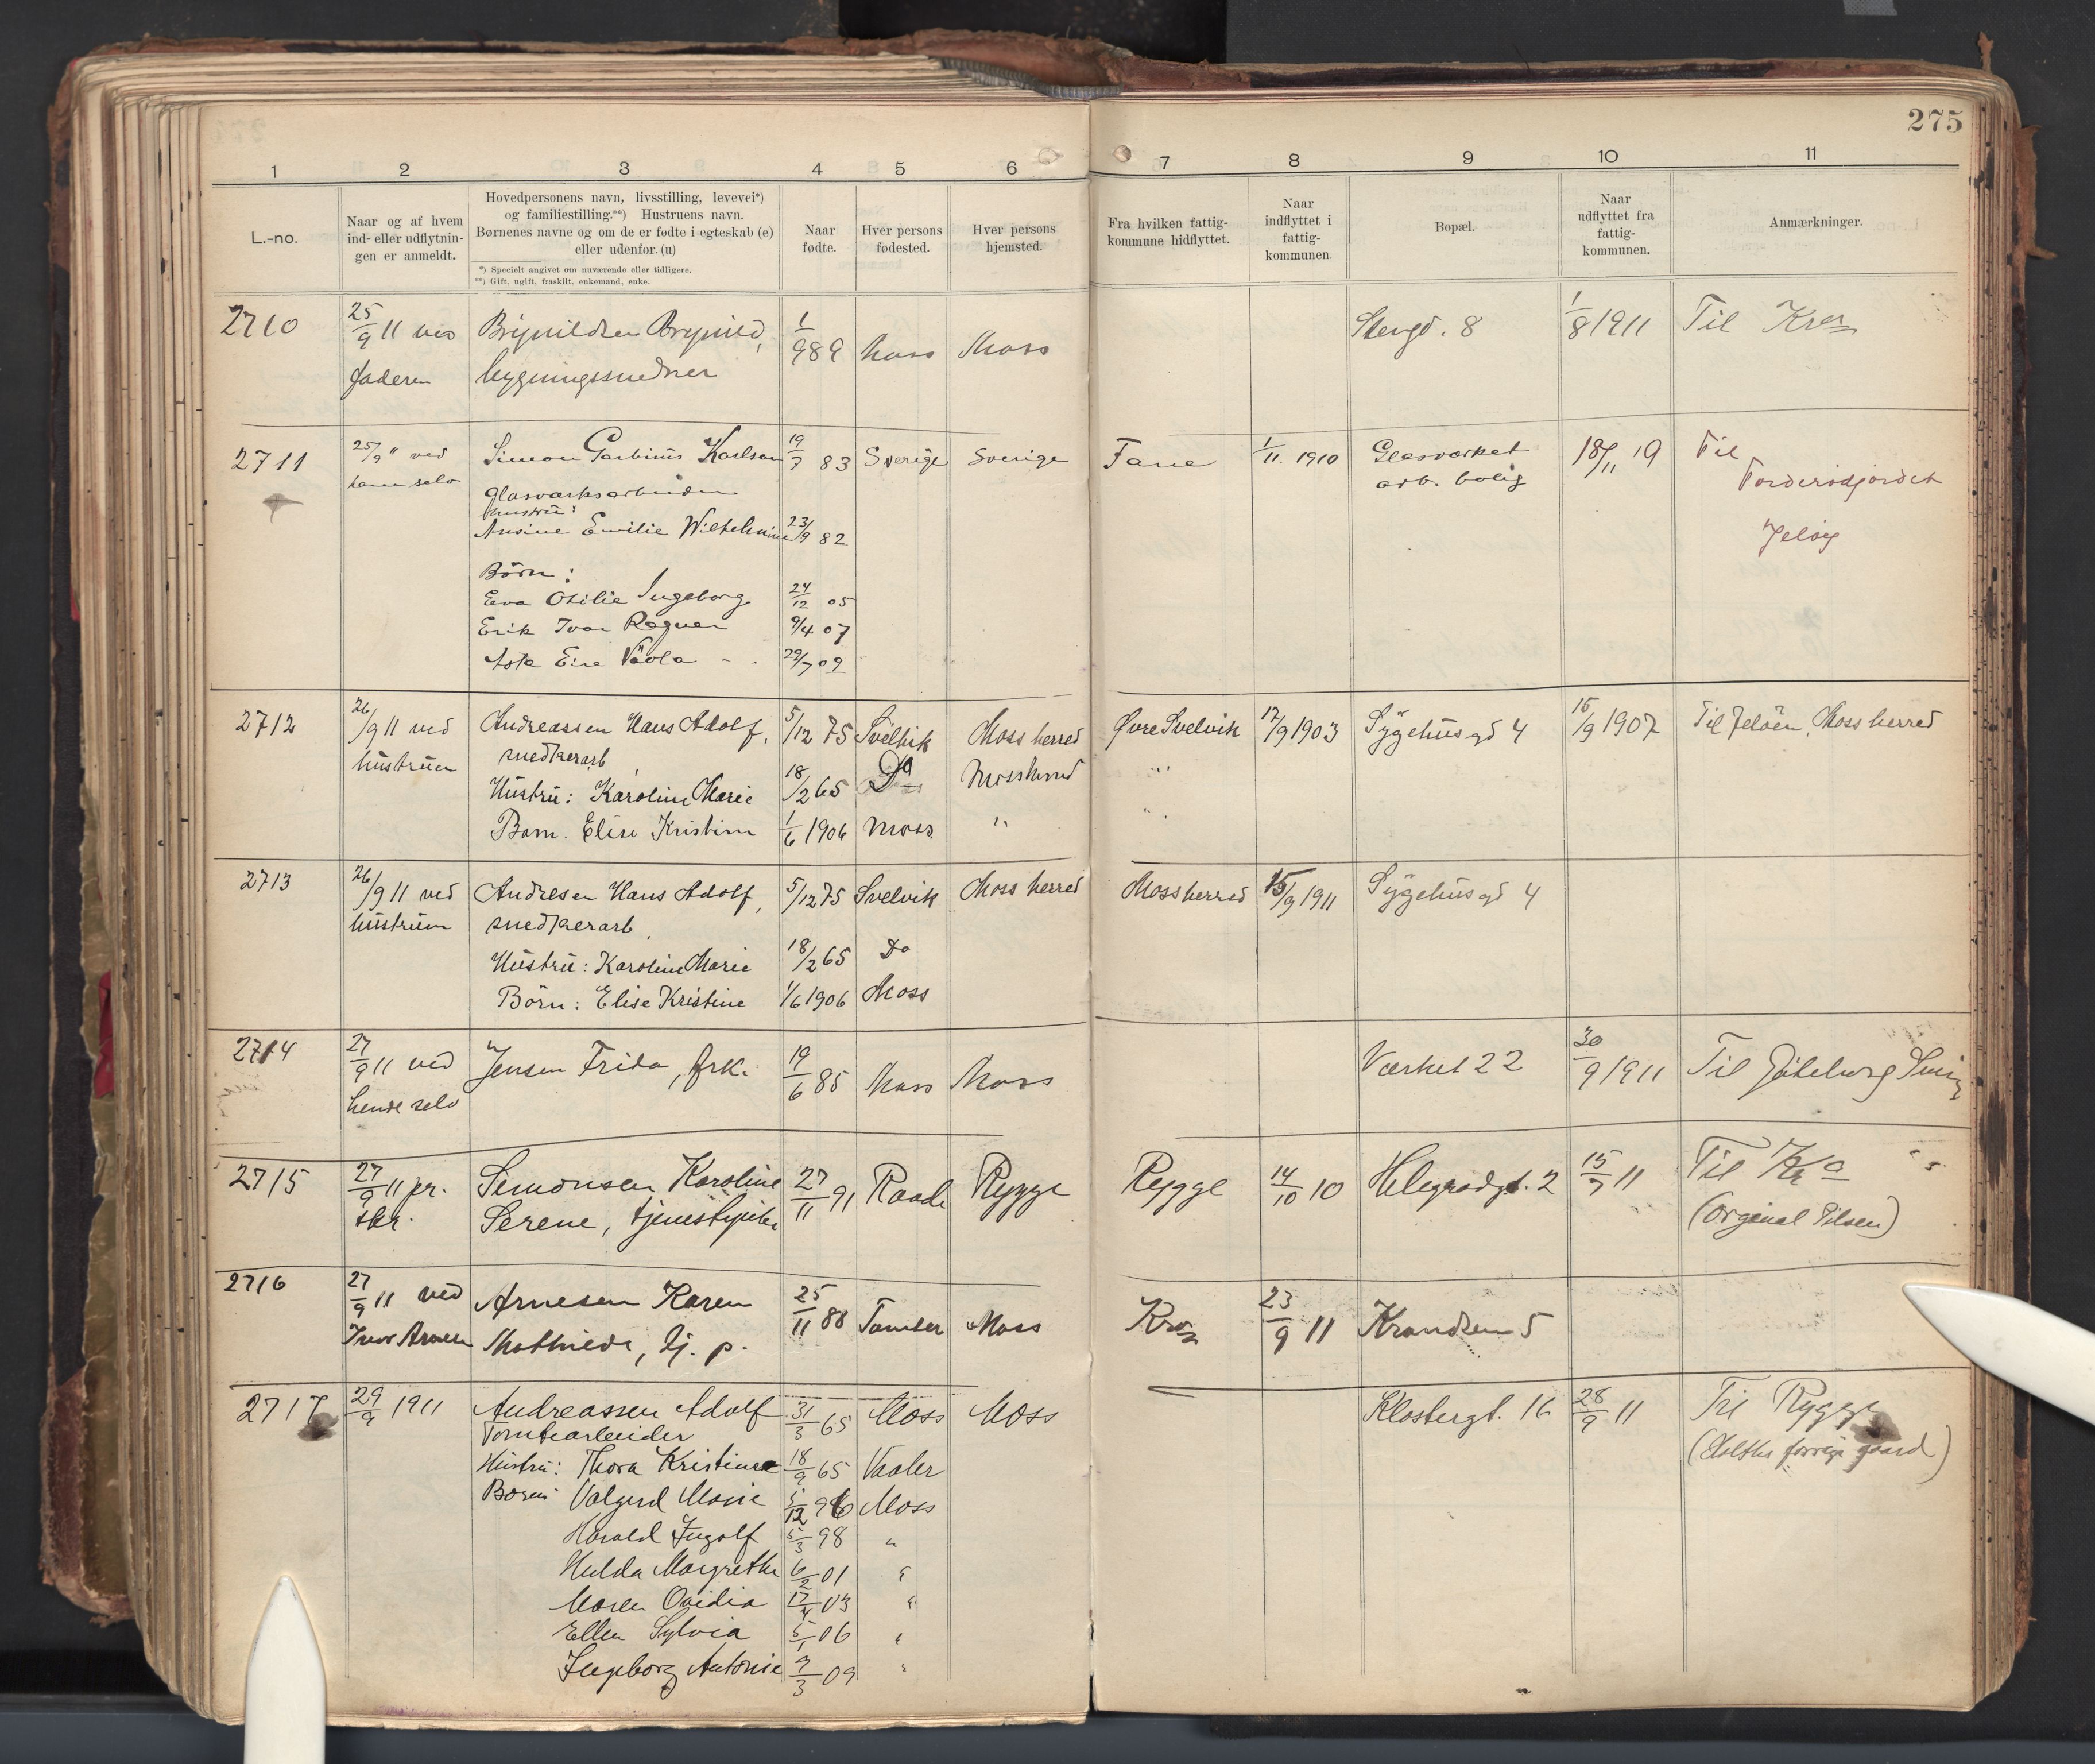 275
1 2 3 4 5 6 7 8 9 10 11
L.-no.
Naar og af hvem
ind- eller udflytnin-
gen er anmeldt.
Hovedpersonens navn, livsstilling, levevei*)
og familiestilling.**) Hustruens navn.
Børnenes navne og om de er fødte i egteskab (e)
eller udenfor. (u)
*) Specielt angivet om nuværende eller tidligere.
**) Gift, ugift, fraskilt, enkemand, enke.
Naar
fødte.
Hver persons
fødested.
Hver persons
hjemsted.
Fra hvilken fattig-
kommune hidflyttet.
Naar
indflyttet i
fattig-
kommunen.
Bopæl.
Naar
udflyttet fra
fattig-
kommunen.
Anmærkninger.
2710 25/9 11 ved Brynildsen Brynild, 1/9 89 Moss Moss Stengd. 8 1/8 1911 Til Kra
faderen bygningssnedker
2711 25/9 " ved Simon Garbinus Karlson 19/7 83 Sverige Sverige Fane 1/11. 1910 Glasværket 18/11 19 Til
ham selv glasværksarbeider arb. bolig
hustru: Jeløy
Ansine Emilie Wilhelmine 23/9 82
Børn:
Eva Otilie Ingeborg 24/12 05
Erik Ivar Ragnar 9/4 07
29/7 09
2712 26/9 11 ved Andreassen Hans Adolf, 5/12 75 Svelvik Moss herred Øvre Svelvik 17/9 1903 Sygehusgd 4 16/9 1907 Til Jeløen, Moss herred
hustruen snedkerarb
Hustru: Karoline Marie 18/2 65 Do Moss herred "
Barn. Elise Kristine 1/6 1906 Moss " "
2713 26/9 11 ved Andresen Hans Adolf, 5/12 75 Svelvik Moss herred Moss herred 15/9 1911 Sygehusgd 4
hustruen snedkerarb,
Hustru: Karoline Marie 18/2 65 Do
Børn: Elise Kristine 1/6 1906 Moss
2714 27/9 11 ved Jensen Frida, frk. 19/6 85 Moss Moss Værket 22 30/9 1911 Til Göteborg
hende selv
2715 27/9 11 pr. Simonsen Karoline 27/11 91 Raade Rygge Rygge 14/10 10 Helegradgt. 2 15/7 11 Til Kra
skr. Serene, tjenestepike (Orginal Pilsen)
2716 27/9 11 ved Arnesen Karen 25/11 88 Tomter Moss Kra 23/9 11 Krandsen 5
Arnesen Mathilde, tj. p.
2717 29/9 1911 Andreassen Adolf 31/3 65 Moss Moss Klostergt. 16 28/9 11 Til Rygge
Tomtearbeider
Hustru: Thora Kristine 18/9 65 Vaaler
Børn: Valgerd Marie 5/12 96 Moss
Harald Ingolf 5/3 98 "
Hulda Margrethe 6/2 01 "
Maren Ovidia 17/4 03 "
Ellen Sylvia 5/1 06 "
Ingeborg Antonie 9/3 09 "